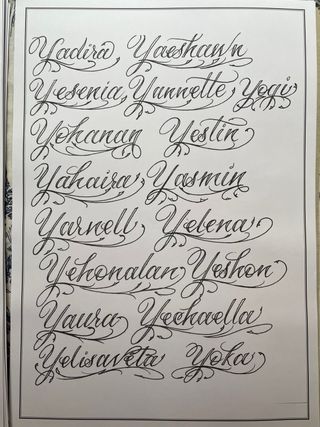 Yadira, Yaeshawn
Yesenia, Yannette, Yogi
Yohanan Yestin
Yahaira, Yasmin
Yarnell Yelena
Yehonalan Yeshon
Yaura Yechaella
Yelisaveta Yoka